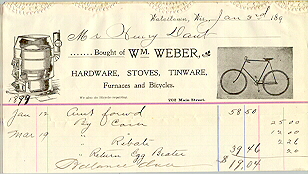 Watertown, Wis., Jan 2nd 189
Mr Henry
Bought of WM. WEBER,
HARDWARE, STOVES, TINWARE,
Furnaces and Bicycles.
We also do Bicycle repairing.
702 Main Street.
1899
Jan 12 Amt forwd 58 50
Mar 19 By Cash 25 00
" " 12 00
" Rebate 2 26
" Return Egg Beater 20
39 46
Balance Due $19.04